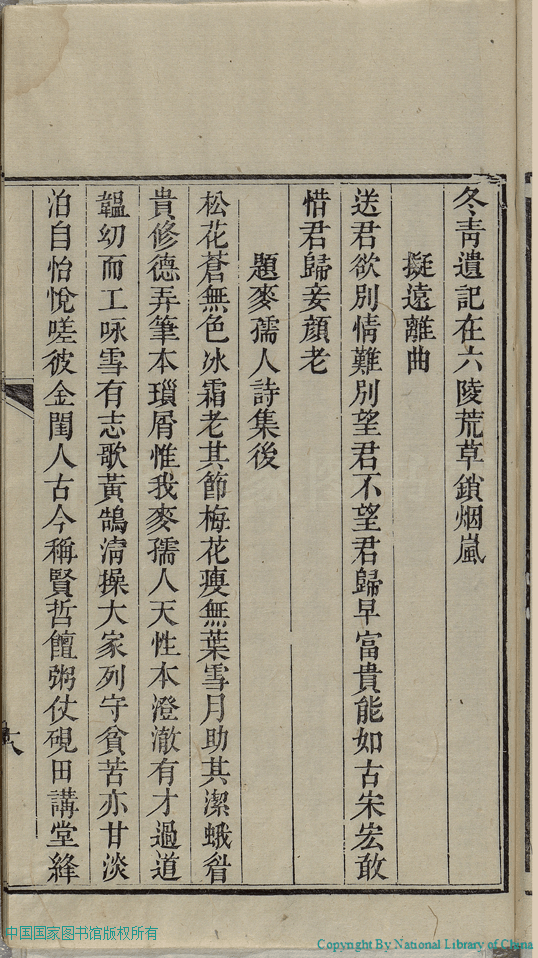 冬青遺記在六陵荒草鎖烟嵐
擬遠離曲
送君欲別情難別望君不望君歸早富貴能如古宋宏敢
惜君歸妾顔老
題麥孺人詩集後
松花蒼無色冰霜老其節梅花瘦無葉雪月助其潔蛾眉
貴修德弄筆本瑣屑惟我麥孺人天性本澄澈有才過道
韞幼而工咏雪有志歌黃鵠清操大家列守貧苦亦甘淡
泊自怡悅嗟彼金閨人古今稱賢哲饘粥仗硯田講堂絳
六
中国国家图书馆版权所有
Copyright By National Library of China